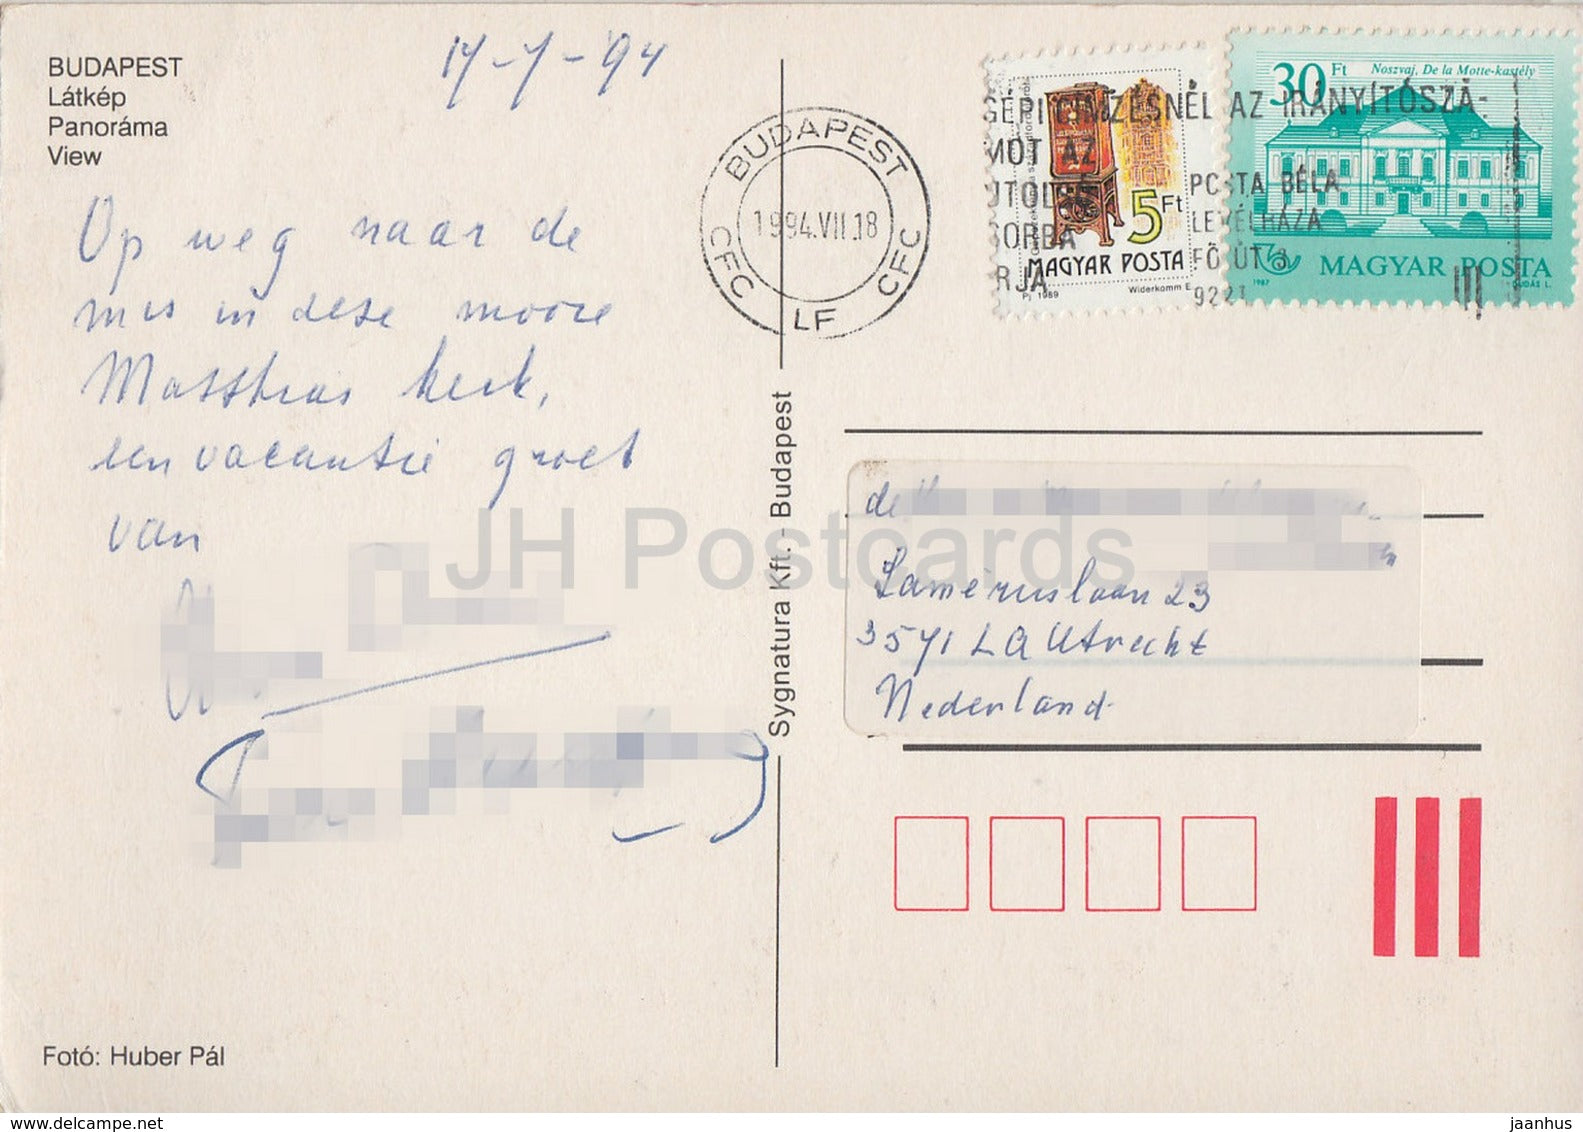 BUDAPEST
Látkép
Panoráma
View
17-7-94
Op weg naar de
mis in deze mooie
Matthias kerk,
een vacantie groet
van
Fotó: Huber Pál
Sygnatura Kft. - Budapest
BUDAPEST
1994.VII.18
CFC CFC
LF
GÉPI CÍMZÉSNÉL AZ IRÁNYÍTÓSZÁ-
MOT AZ
UTOLSÓ
SORBA
ÍRJA
POSTA BÉLA
LEVÉLHÁZA
FŐ ÚT 3.
9221
5 Ft
MAGYAR POSTA
Pj 1989 Widerkomm E.
30 Ft Noszvaj, De la Motte-kastély
MAGYAR POSTA
1987 DUDÁS L.
de
Lamérislaan 23
3571 LA Utrecht
Nederland
JH Postcards
delcampe.net
jaanhus